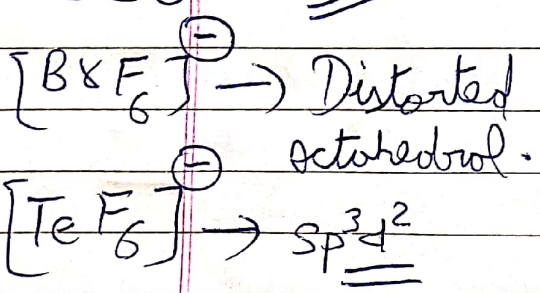 [BrF₆]⁻ → Distorted
octahedral.
[TeF₆]⁻ → sp³d²